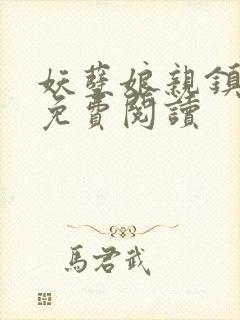 妖孽娘親鎮
免費閱讀
馬君武